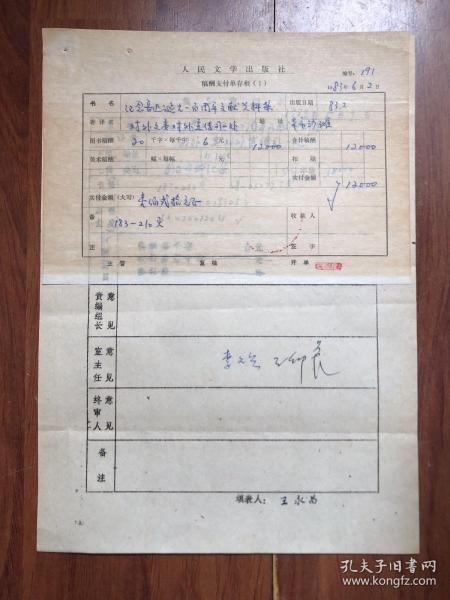 人民文学出版社
编号：191
稿酬支付单存根（1）
1983年6月2日
书名 纪念鲁迅诞生一百周年文献资料集 出版日期 83.2
著译者 对外文委对外宣传司
图书稿酬 20 千字×每千字 6 元 12000 合计稿酬 12000
美术稿酬 幅×每幅 元 扣除
实付金额 12000
实付金额（大写） 壹佰贰拾元正
备注 183—210页
收款人
签字
主管 复核 开单
责编组长 意见
室主任 意见 李文兵 王仰晨
终审人 意见
备注
填表人：王永昌
孔夫子旧书网
www.kongfz.com